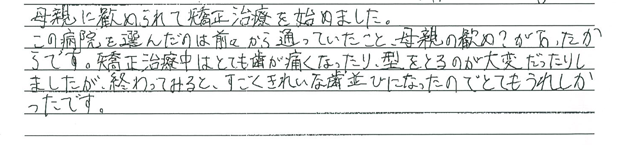 母親に歓められて矯正治療を始めました。
この病院を選んだのは前々から通っていたこと、母親の歓め?があったか
らです。矯正治療中はとても歯が痛くなったり、型をとるのが大変だったりし
ましたが、終わってみると、すごくきれいな歯並びになったのでとてもうれしか
ったです。